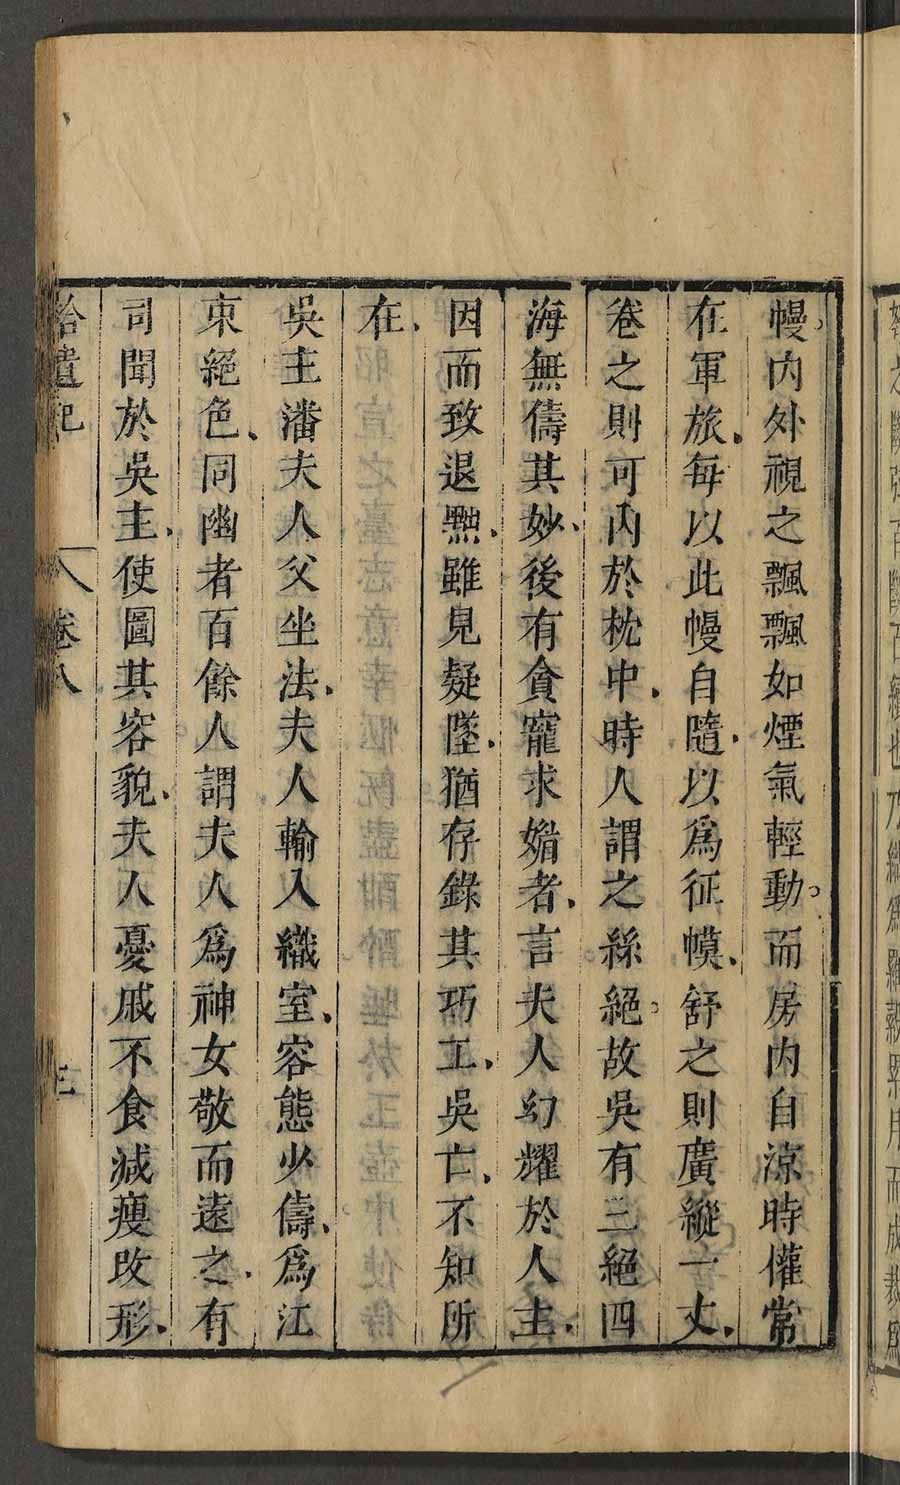 幔內外視之飄飄如煙氣輕動而房內自涼時權常
在軍旅每以此幔自隨以爲征幙舒之則廣縱一丈
卷之則可內於枕中時人謂之絲絕故吳有三絕四
海無儔其妙後有貪寵求媚者言夫人幻耀於人主
因而致退黜雖見疑墜猶存錄其巧工吳亡不知所
在
吳主潘夫人父坐法夫人輸入織室容態少儔爲江
東絕色同幽者百餘人謂夫人爲神女敬而遠之有
司聞於吳主使圖其容貌夫人憂戚不食減瘦改形
拾遺記
卷八
三